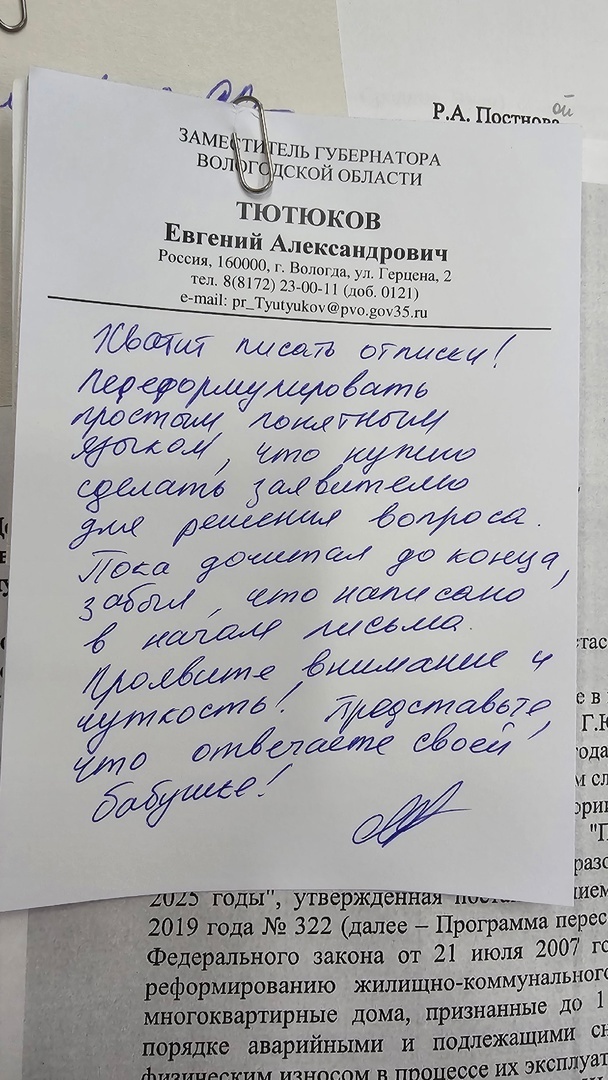 Р.А. Постнова
ой
ЗАМЕСТИТЕЛЬ ГУБЕРНАТОРА
ВОЛОГОДСКОЙ ОБЛАСТИ
ТЮТЮКОВ
Евгений Александрович
Россия, 160000, г. Вологда, ул. Герцена, 2
тел. 8(8172) 23-00-11 (доб. 0121)
e-mail: pr_Tyutyukov@pvo.gov35.ru
Хватит писать отписки!
Переформулировать
простым понятным
языком, что нужно
сделать заявителю
для решения вопроса.
Пока дочитал до конца,
забыл, что написано
в начале письма.
Проявите внимание и
чуткость! Представьте,
что отвечаете своей
бабушке!
2025 годы", утвержденная
2019 года № 322 (далее – Программа перес
Федерального закона от 21 июля 2007 го
реформированию жилищно-коммунального
многоквартирные дома, признанные до 1
порядке аварийными и подлежащими сн
физическим износом в процессе их эксплуат